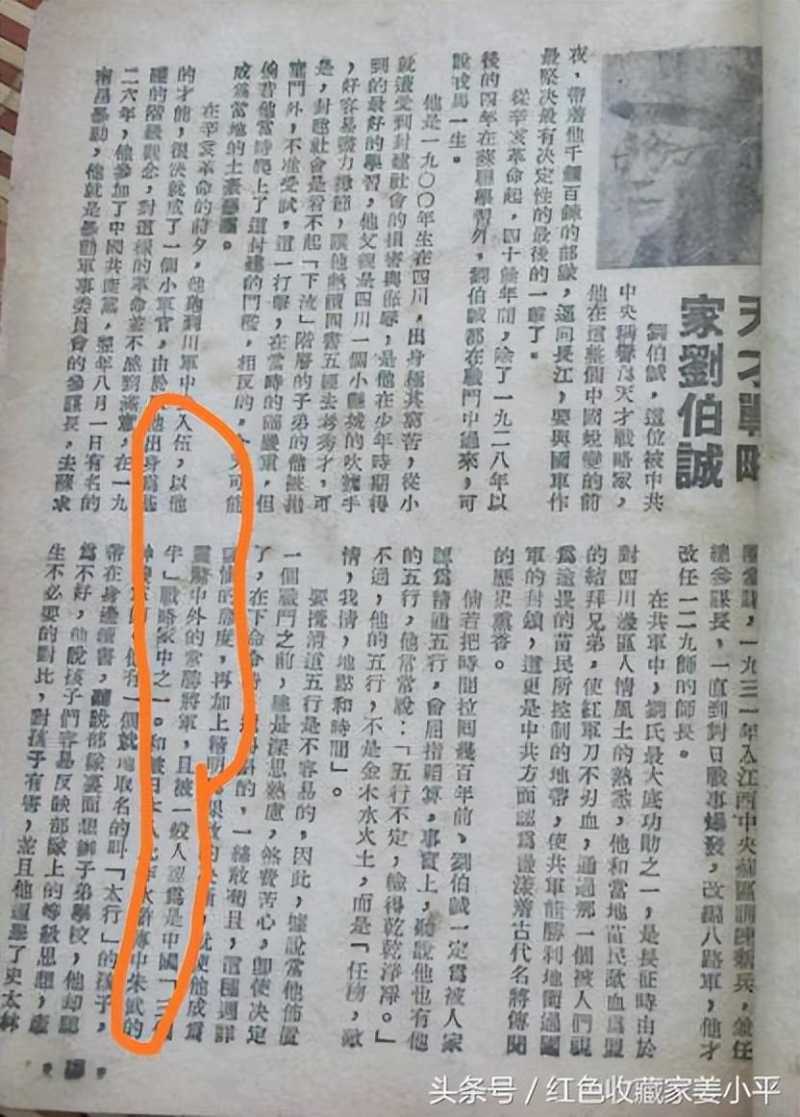 天才戰略
家劉伯誠
劉伯誠，這位被中共
中央稱譽為天才戰略家，
他在這整個中國蛻變的前
夜，帶着他千錘百鍊的部隊，逼向長江，要與國軍作
最堅決最有決定性的最後的一戰了。
從辛亥革命起，四十餘年間，除了一九二八年以
後的四年在蘇聯學習外，劉伯誠都在戰鬥中過來，可
說戎馬一生。
他是一九〇〇年生在四川，出身極其窮苦，從小
就遭受到封建社會的損害與侮辱，是他在少年時期得
到的最好的學習，他父親是四川一個小縣城的吹鼓手
，好容易盡力撙節，讓他熟讀四書五經去考秀才，可
是，封建社會是看不起「下流」階層的子弟的他被拋
門外，不准受試，這一打擊，在當時的確嚴重，但
倘若他當時爬上了這封建的門檻，相反的，今天可能
成為當地的土豪
在辛亥革命的前夕，他跑到川軍中入伍，以他
的才能，很快就成了一個小軍官，由於他出身為
的階級觀念，對這樣的革命並不感到滿意，在一九
二六年，他參加了中國共產黨，翌年八月一日有名的
南昌暴動，他就是暴動軍事委員會的參謀長，去蘇求
一九三一年入江西中央蘇區訓練新兵，兼任
總參謀長，一直到對日戰事爆發，改編八路軍，他才
改任一二九師的師長。
在共軍中，劉氏最大底功勛之一，是長征時由於
對四川邊區人情風土的熟悉，他和當地苗民歃血為盟
的結拜兄弟，使紅軍刀不刃血，通過那一個被人們視
為畏的苗民所控制的地帶，使共軍能勝利地衝過國
軍的封鎖，這更是中共方面認為漾着古代名將傳聞
的歷史薰香。
倘若把時間拉回幾百年前，劉伯誠一定為被人家
認為精通五行，會屈指頭算，事實上，聽說他也有他
的五行，他常常說：「五行不定，輸得乾乾淨淨。」
不過，他的五行，不是金木水火土，而是「任務，敵
情，我情，地點和時間」。
要攪清這五行是不容易的，因此，據說當他佈置
一個戰鬥之前，總是深思熟慮，煞費苦心，即使決定
了，在下命令時，的，一絲不苟且，這週詳
的態度，再加上精明果敢的就使他成為
中外的常勝將軍，且被一般人認為是中國「三個
半」戰略家中之一。和被日本人比作水滸傳中朱武的
他有一個就地取名的叫「太行」的孩子，
帶在身邊讀書，聽說部隊裏面想辦子弟學校，他却認
為不好，他說孩子們容易反映部隊上的等級思想，產
生不必要的對比，對孩子有害，並且他還舉了史太林
头条号／红色收藏家姜小平